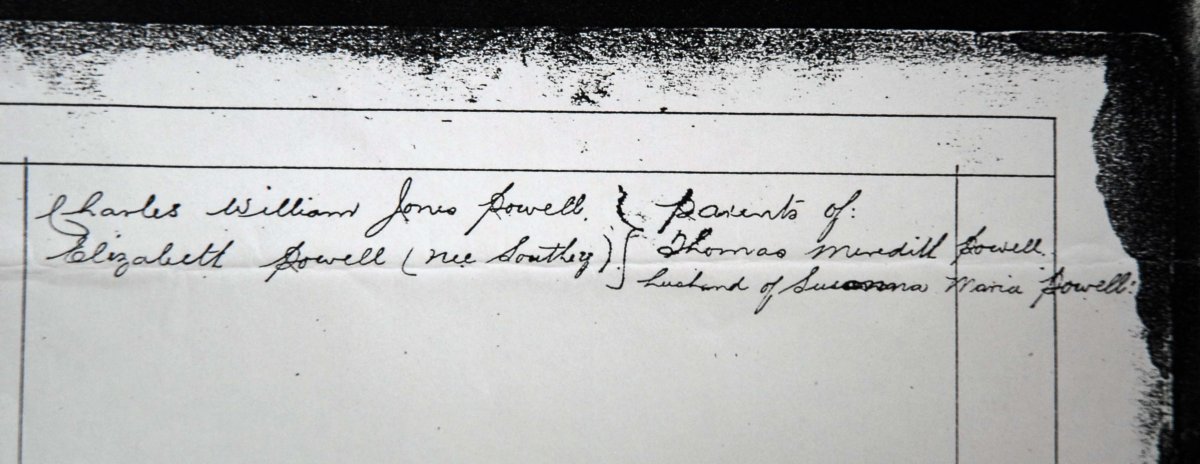 Charles William Jones Powell. } Parents of:
Elizabeth Powell (nee Southey). } Thomas Meredith Powell.
husband of Susanna Maria Powell: